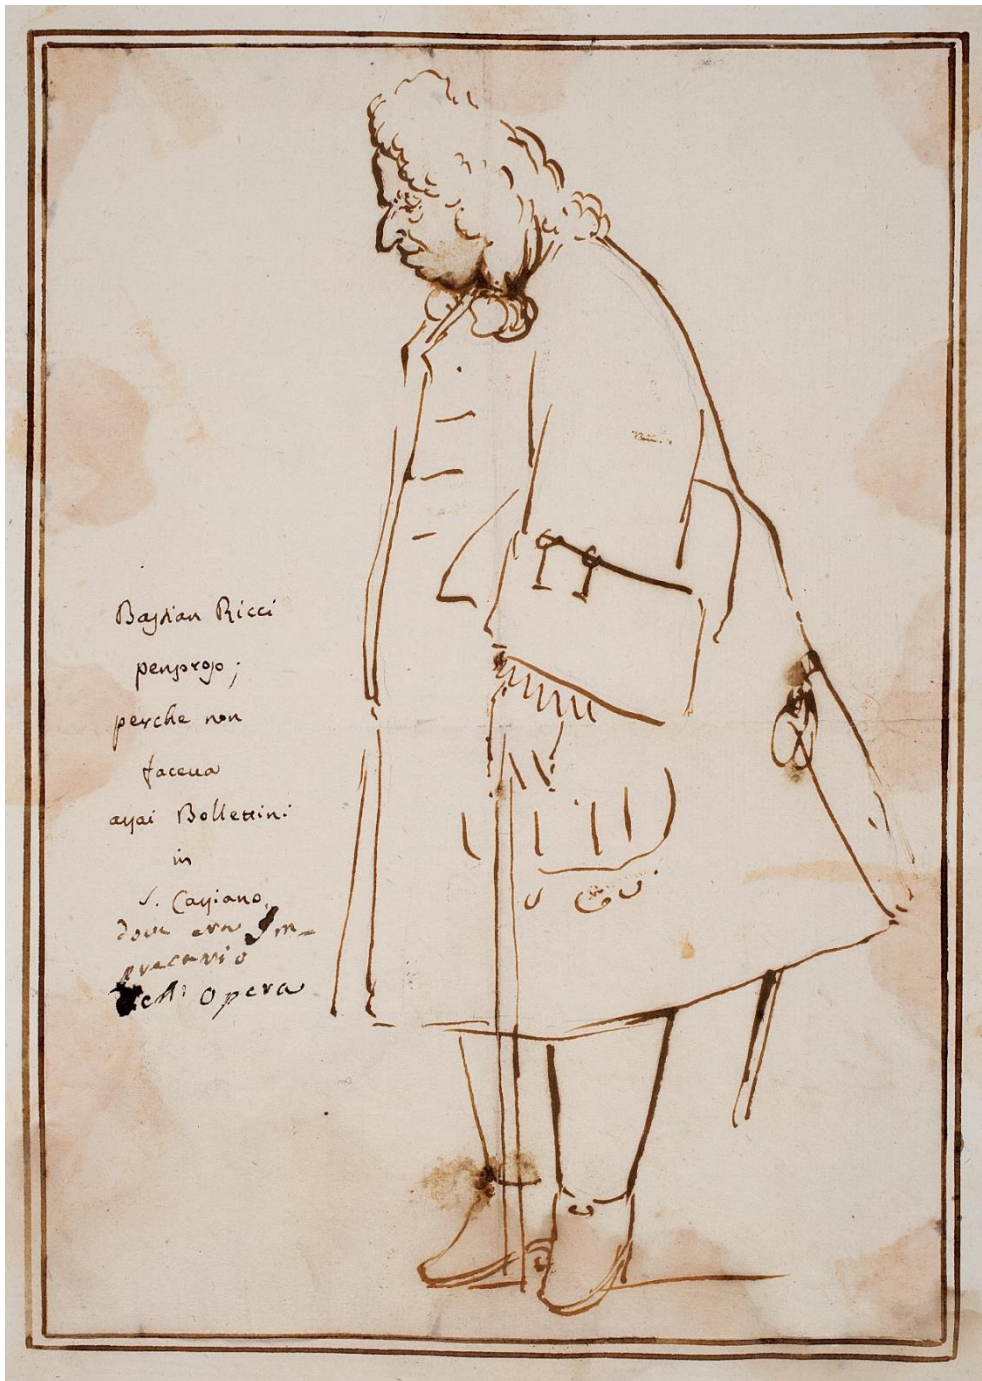 Bastian Ricci
pensoso;
perche non
faceua
assai Bollettini
in
S. Cassiano,
doue era Im=
precario
dell' Opera